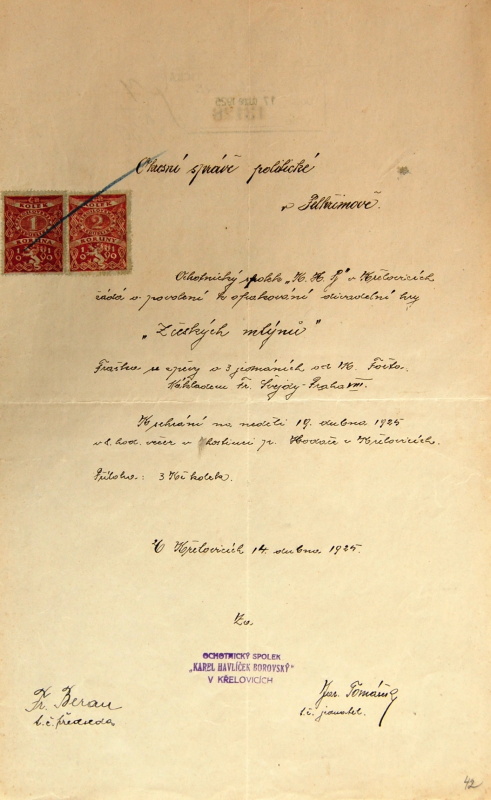 Okresní správě politické
v Pelhřimově.
KOLEK
1
KORUNA
KOLEK
KORUNY
Ochotnický spolek „K. H. B" v Křelovicích
žádá o povolení k opakování divadelní hry
„Zděských mlýnů"
Fraška se zpěvy o 3 jednáních od K. Fořta.
Nákladem Fr. Švejdy - Praha VIII.
K sehrání na neděli 19. dubna 1925
v 8. hod. večer v hostinci p. Hodače v Křelovicích.
Příloha: 3 Kč kolek.
V Křelovicích 14. dubna 1925.
Za
OCHOTNICKÝ SPOLEK
„KAREL HAVLÍČEK BOROVSKÝ"
V KŘELOVICÍCH
Fr. Beran
t. č. předseda
Tomášů
t. č. jednatel.
42